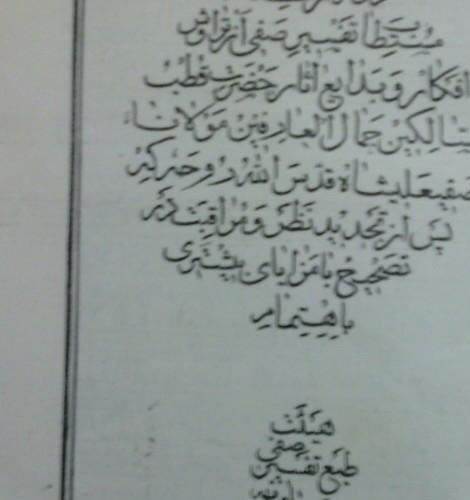 مستطاب تفسیر صفی از تراوش
افکار و بدایع آثار حضرت قطب
السالکین جمال العارفین مولانا
صفیعلیشاه قدس الله روحه که
پس از تجدید نظر و مراقبت در
تصحیح با مزایای بیشتری
باهتمام
هیئت
صفی
طبع تفسیر